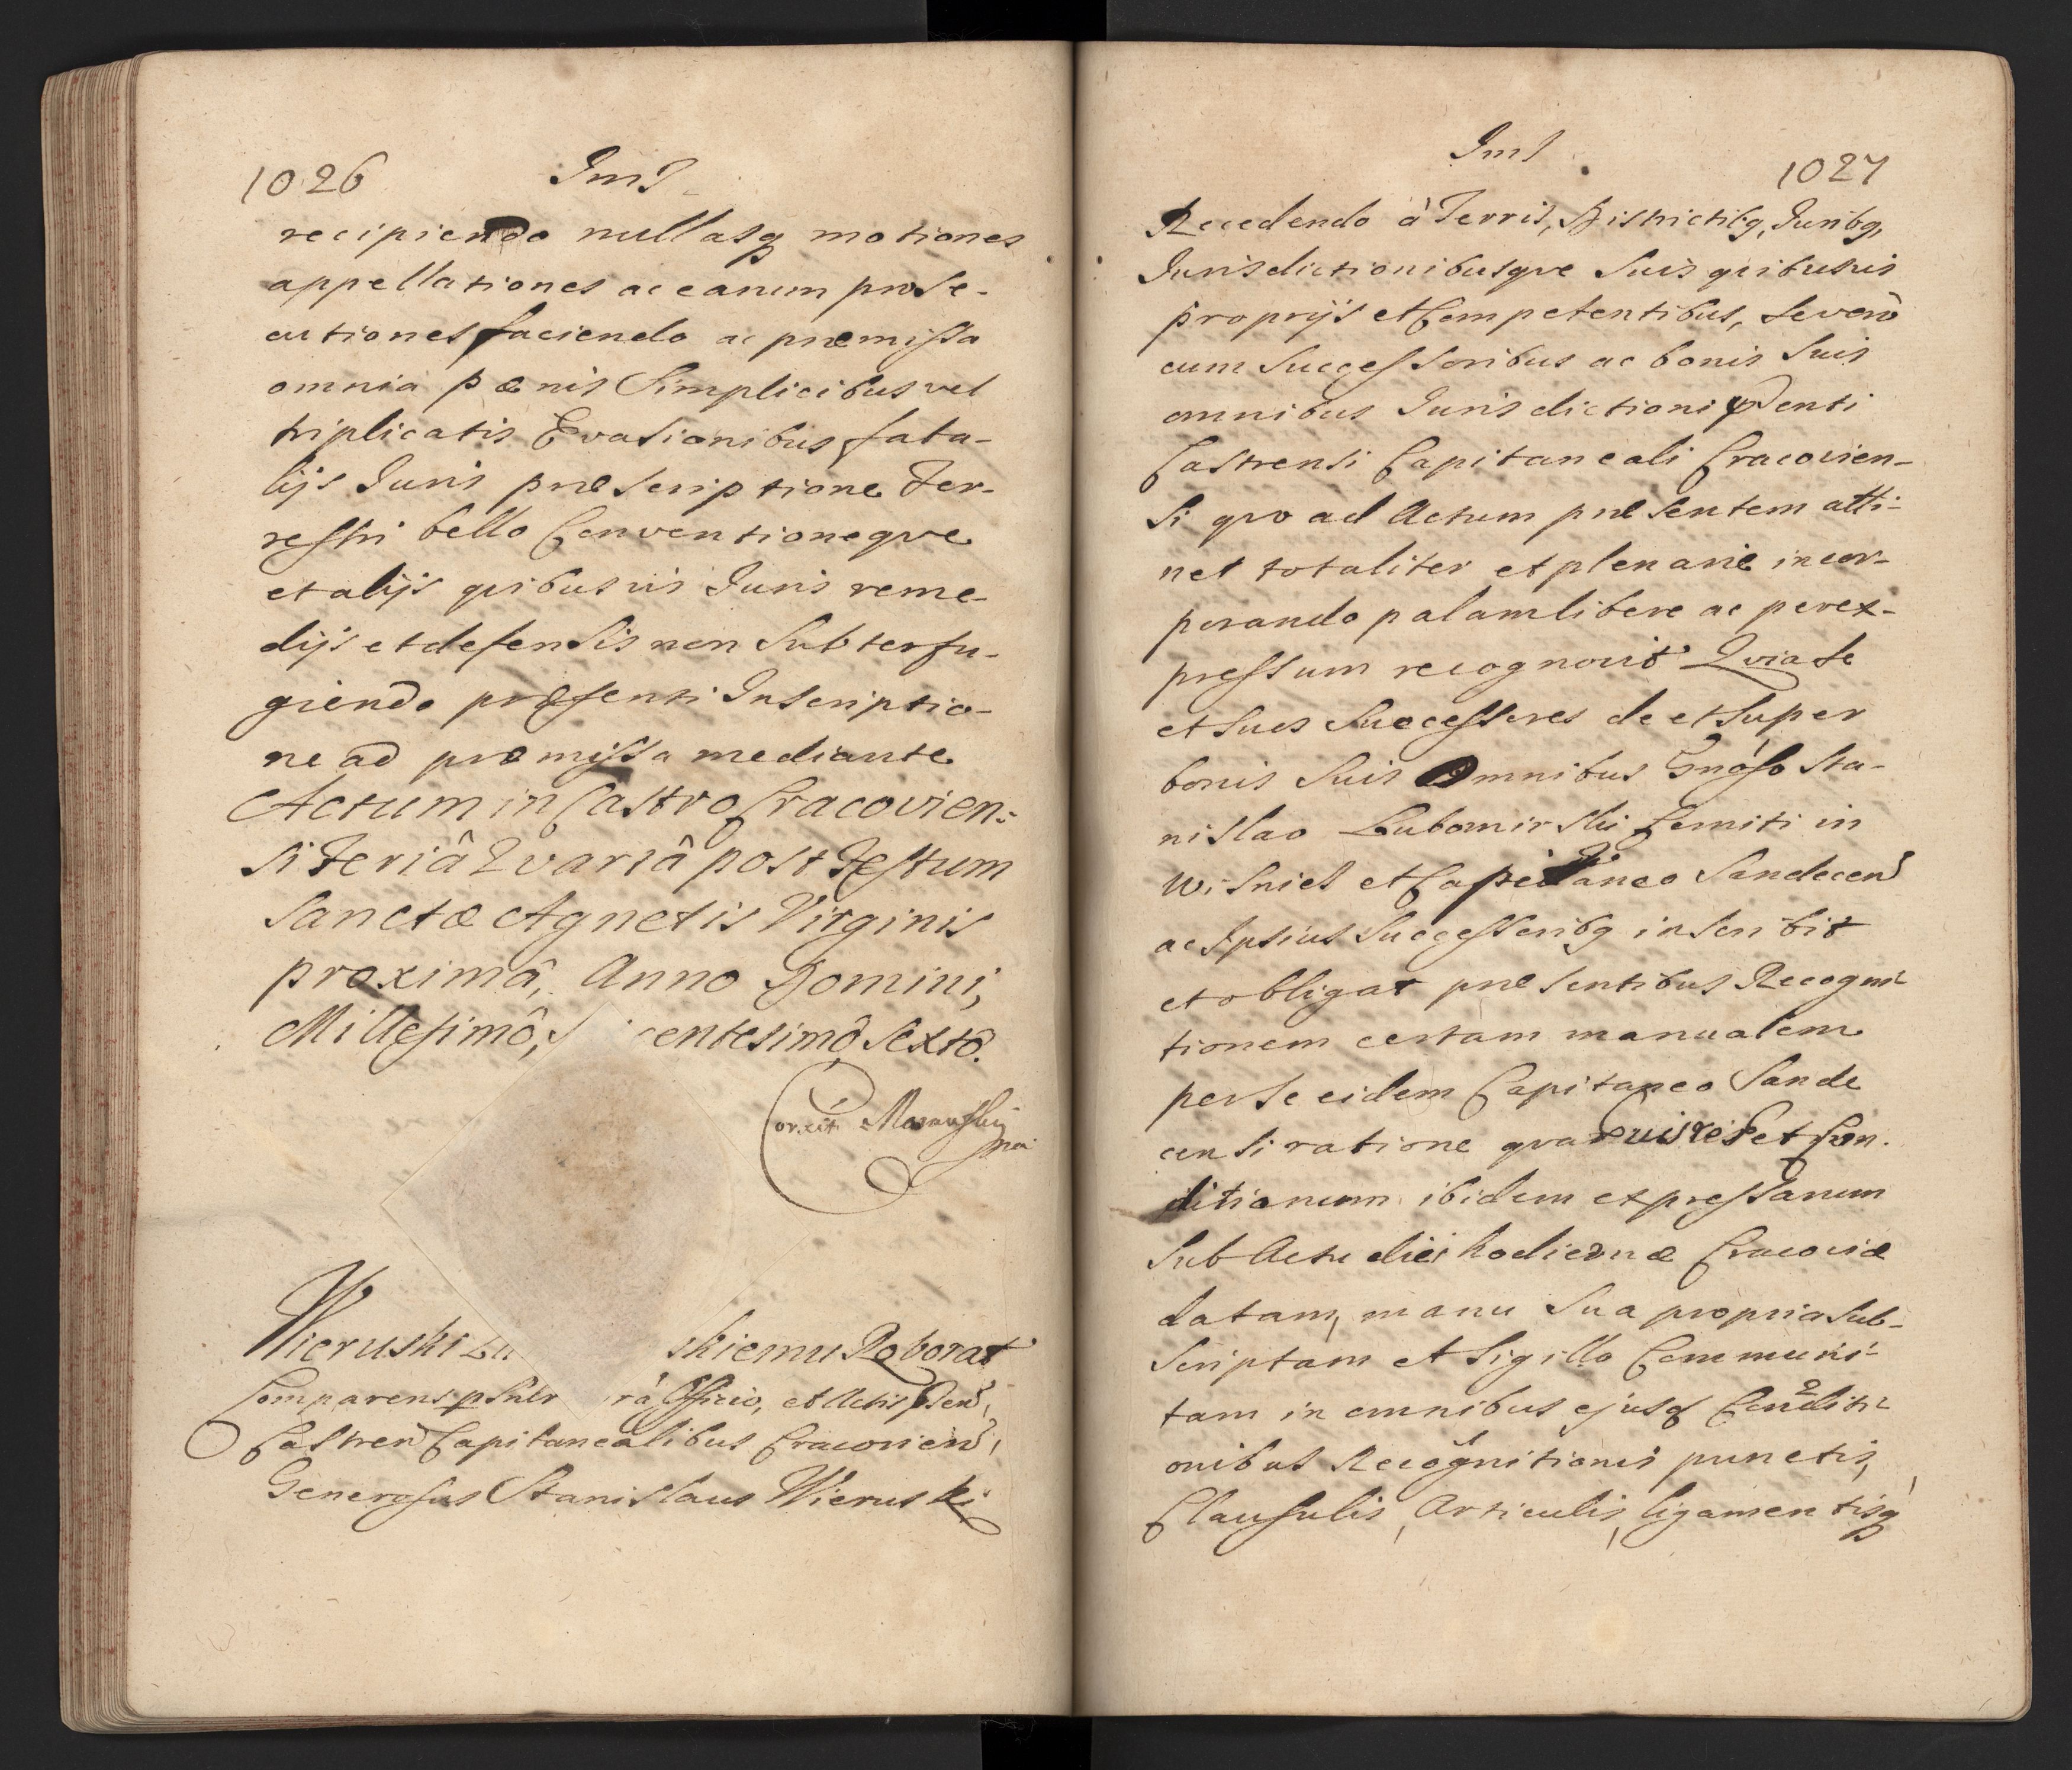 1026 Ims
recipiendo nullasq motiones
appellationes ac earum prose-
cutiones faciendo ac præmissa
omnia pænis Simplicibus vel
triplicatis Evasionibus fata-
lijs Juris præscriptione Ter-
restri bello Conventioneqve
et alijs qvibusvis Juris reme-
dijs et defensis non Subterfu-
giendo præsenti Inscriptio-
ne ad præmissa mediante
Actum in Castro Cracovien:
si Feriâ Qvartâ post Festum
Sanctæ Agnetis Virginis
proximâ, Anno Domini,
Millesimô, S centesimô Sextô.
Corexit
mpr
Wieruski Lu skiemu Roborat
Comparens râ Officio, et Actis
Castren Capitanealibus Cracovien,
Generosus Stanislaus Wieruski
Ims 1027
Recedendo à Terris, Districtibq, Juribq,
Jurisdictionibusqve Suis qvibusvis
proprijs et Competentibus, Severò
cum Successoribus ac bonis Suis
omnibus Jurisdictioni pnti
Castrensi Capitaneali Cracovien-
si qvo ad Actum præsentem atti-
net totaliter et plenarie incor-
porando palam libere ac perex-
pressum recognovit Qvia Se
et Suos Successores de et Super
bonis Suis Omnibus Gnòso Sta-
nislao Lubomirski Comiti in
Wisnics et Capitaneo Sandecen
ac Ipsius Successoribq inscribit
et obligat præsentibus Recogni-
tionem certam manualem
per Se eidem Capitaneo Sande
censi ratione qvarumvis rerum et Con-
ditionum ibidem expressarum
Sub Actu diei hodiernæ Cracoviæ
datam, manu Sua propria Sub-
scriptam et Sigillo Communi-
tam in omnibus ejusq Conditi-
onibus Recognitionis punctis,
Clausulis, Articulis, ligamentisq